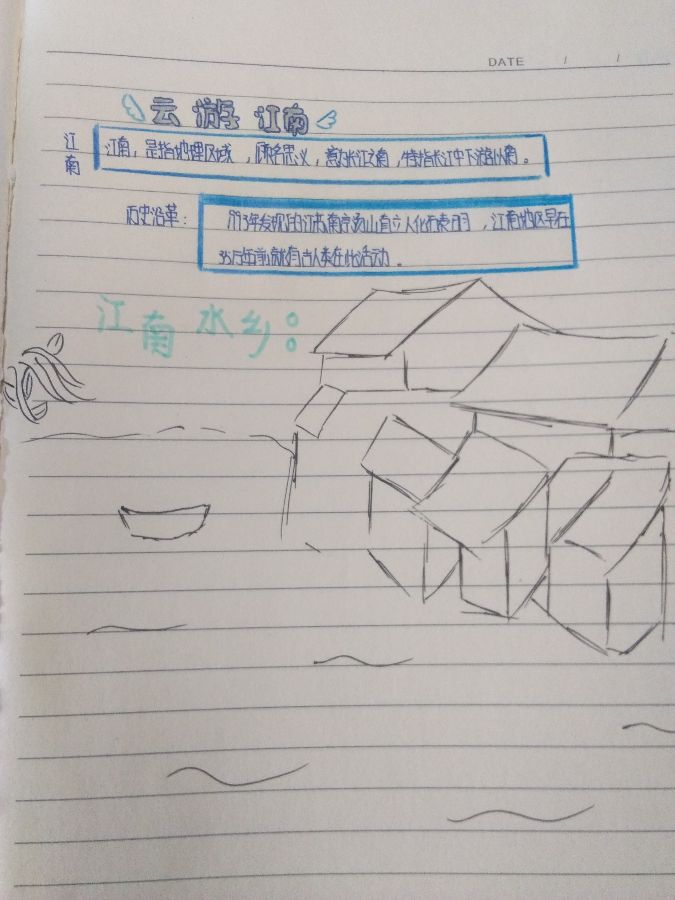 DATE / /
云游江南
江南
江南，是指地理区域，顾名思义，意为长江之南，特指长江中下游以南。
历史沿革：
1993年发现的江苏南京汤山直立人化石表明，江南地区早在
35万年前就有古人类在此活动。
江南水乡：